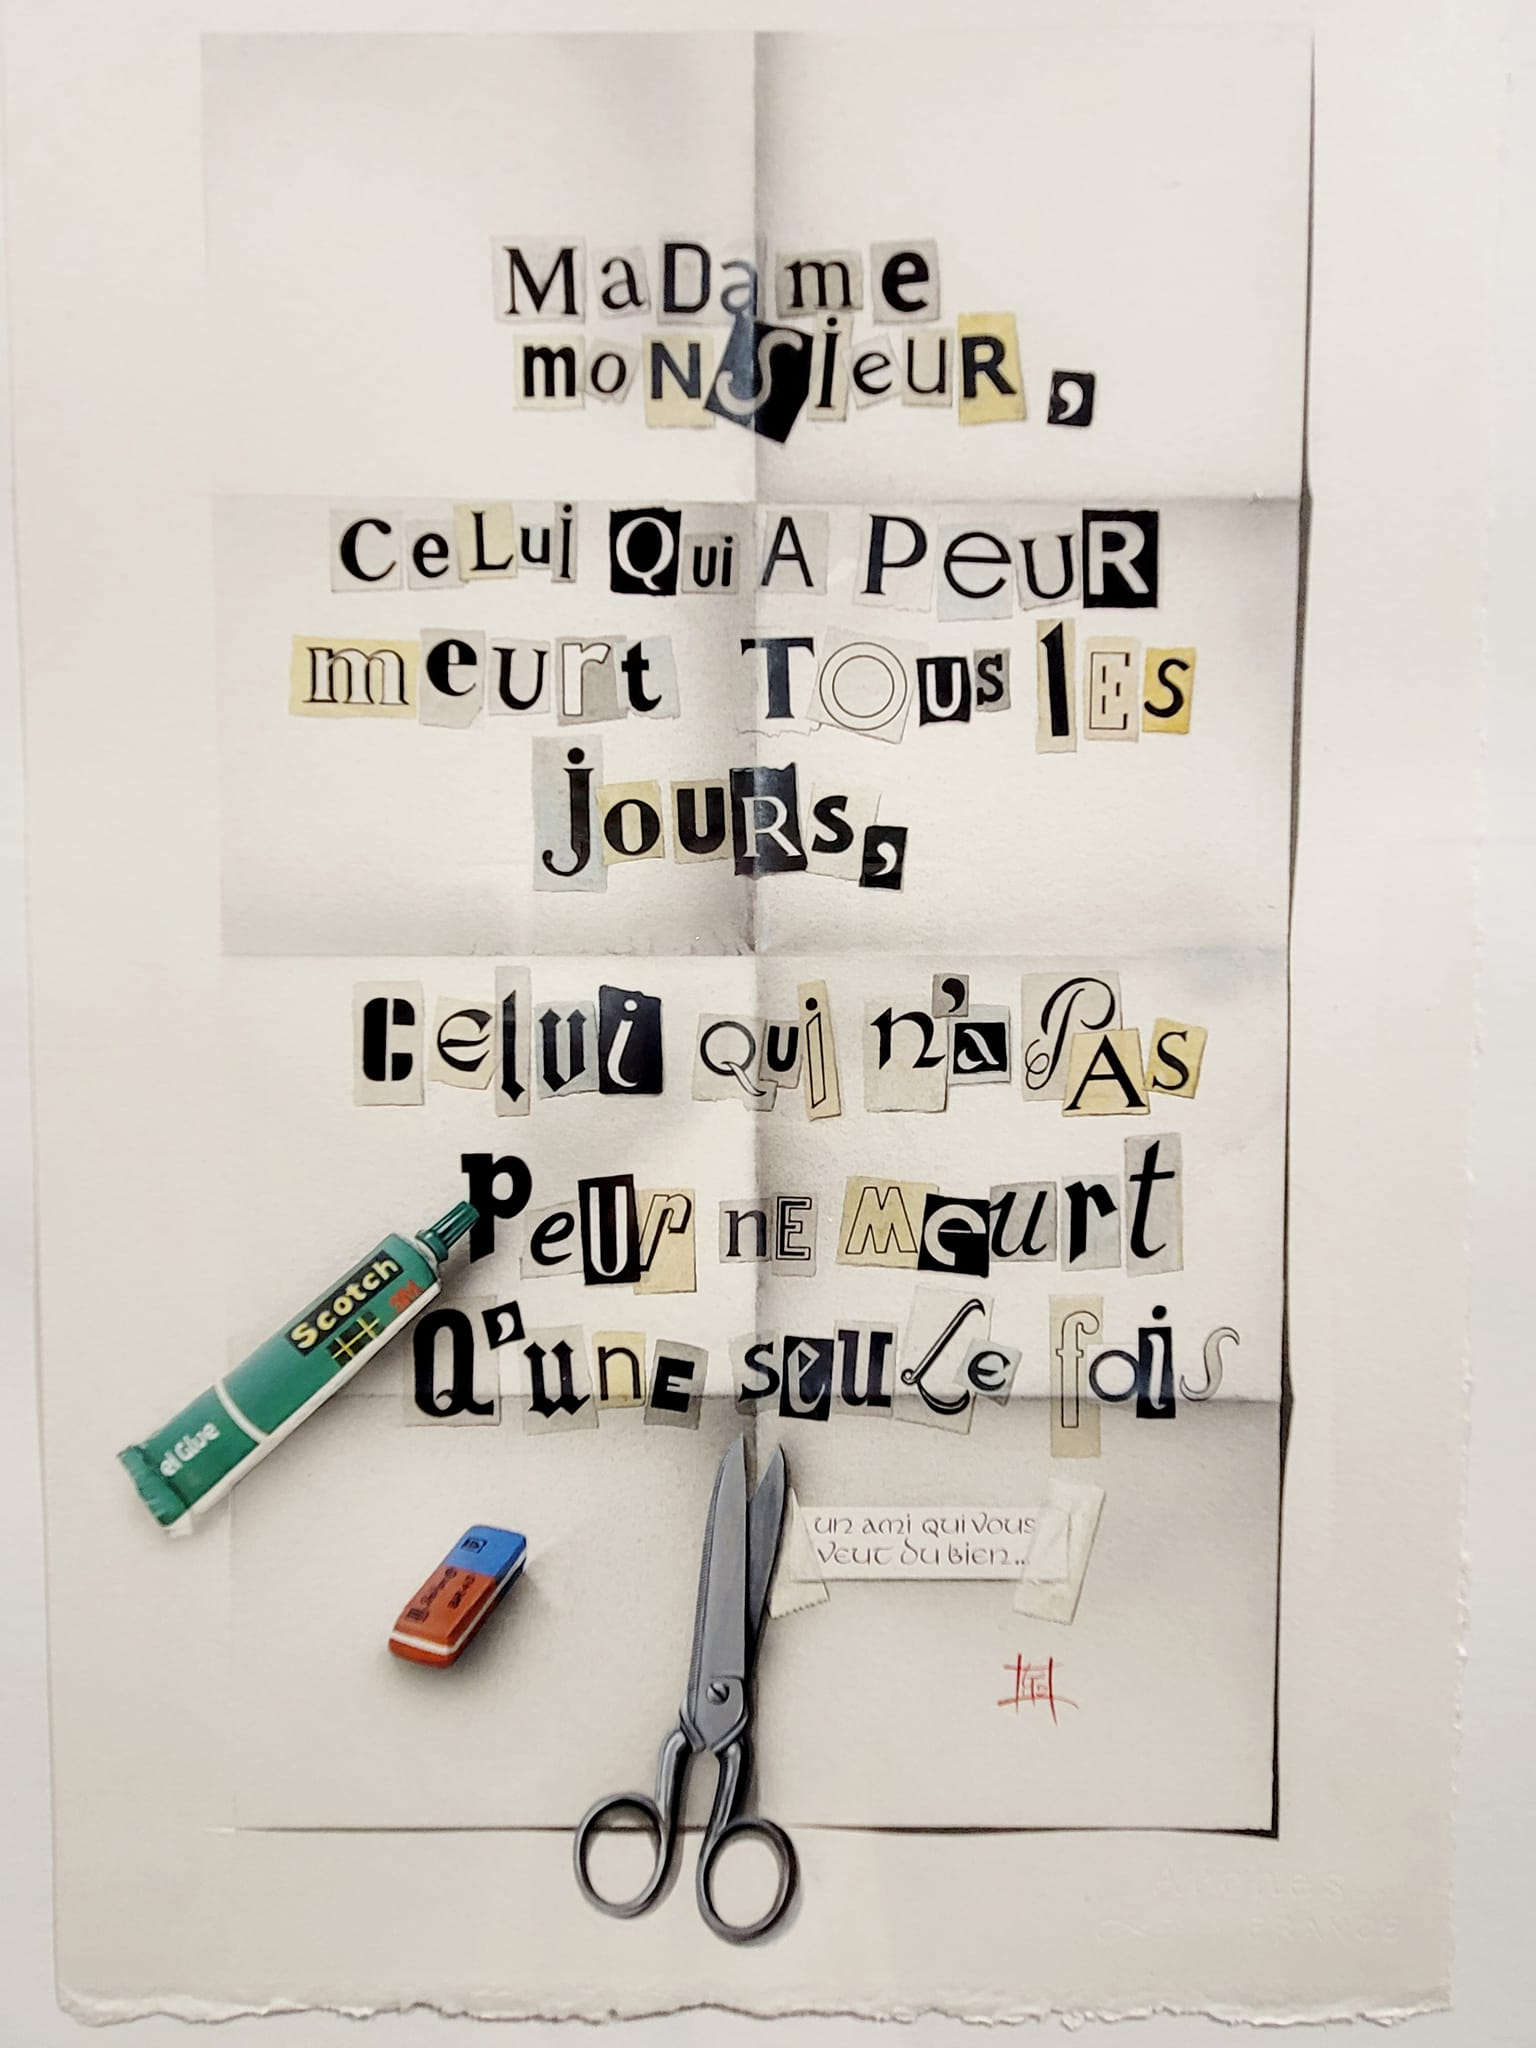 MaDame
moNSieuR,
CeLui Qui A PeuR
meurt TOus lEs
jouRs,
Celui Qui n'a PAs
PeUr nE Meurt
Q'unE seuLe fois
Scotch
3M
el Glue
un ami qui vous
veut du bien...
Arches
FRANCE